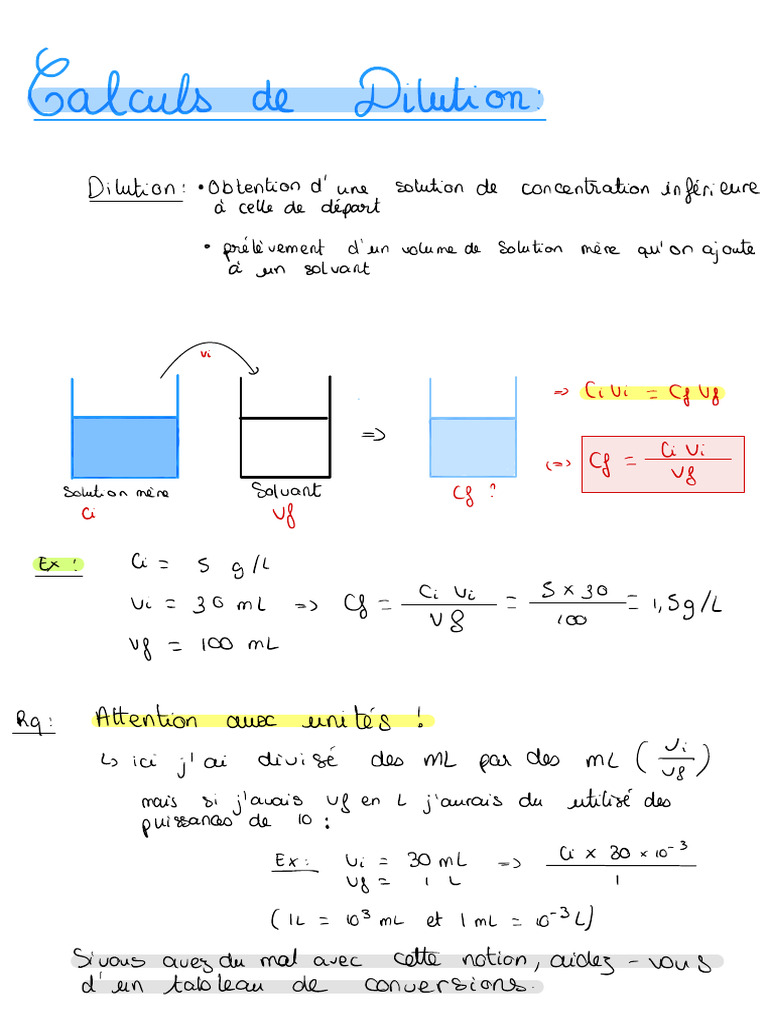 Calculs de Dilution :
Dilution : • Obtention d'une solution de concentration inférieure
à celle de départ
• prélèvement d'un volume de solution mère qu'on ajoute
à un solvant
Vi
=> Ci Vi = Cf Vf
=>
(=> Cf = Ci Vi / Vf
Solution mère
Ci
Solvant
Vf
Cf ?
Ex : Ci = 5 g/L
Vi = 30 mL => Cf = Ci Vi / Vf = 5 x 30 / 100 = 1,5g/L
Vf = 100 mL
Rq : Attention aux unités !
↳ ici j'ai divisé des mL par des mL ( Vi / Vf )
mais si j'avais Vf en L j'aurais du utilisé des
puissances de 10 :
Ex : Vi = 30 mL => Ci x 30 x 10⁻³ / 1
Vf = 1 L
(1L = 10³ mL et 1 mL = 10⁻³ L)
Si vous avez du mal avec cette notion, aidez-vous
d'un tableau de conversions.